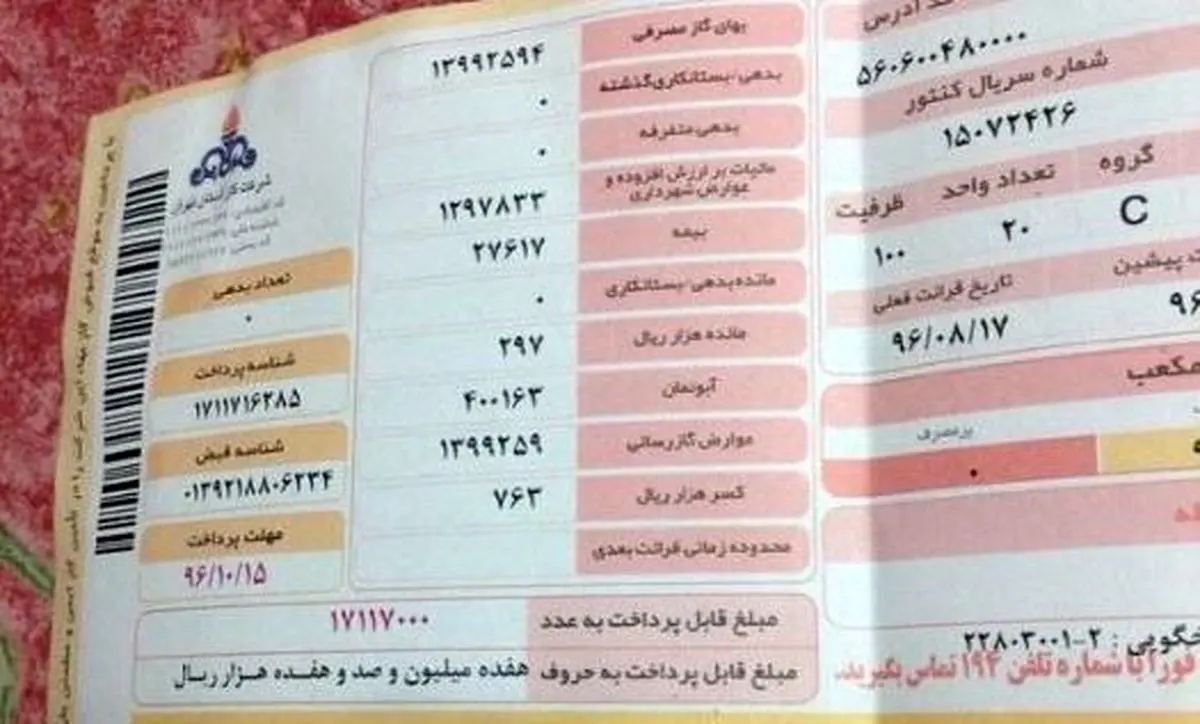 کد آدرس
۵۶۰۶۰۰۴۸۰۰۰۰
شماره سریال کنتور
۱۵۰۷۲۴۲۶
گروه تعداد واحد ظرفیت
C ۲۰ ۱۰۰
پیشین تاریخ قرائت فعلی
۹۶/۰۸/۱۷
مکعب
پرمصرف
۰
۲-۲۲۸۰۳۰۰۱
فورا با شماره تلفن ۱۹۴ تماس بگیرید.
بهای گاز مصرفی ۱۳۹۹۲۵۹۴
بدهی/بستانکاری گذشته ۰
بدهی متفرقه ۰
مالیات بر ارزش افزوده و
عوارض شهرداری ۱۲۹۷۸۳۳
بیمه ۲۷۶۱۷
مانده بدهی/بستانکاری ۰
مانده هزار ریال ۲۹۷
آبونمان ۴۰۰۱۶۳
عوارض گازرسانی ۱۳۹۹۲۵۹
کسر هزار ریال ۷۶۳
محدوده زمانی قرائت بعدی
شرکت گاز استان تهران
تعداد بدهی
۰
شناسه پرداخت
۱۷۱۱۷۱۶۲۸۵
شناسه قبض
۰۱۳۹۲۱۸۸۰۶۲۳۴
مهلت پرداخت
۹۶/۱۰/۱۵
مبلغ قابل پرداخت به عدد ۱۷۱۱۷۰۰۰
مبلغ قابل پرداخت به حروف هفده میلیون و صد و هفده هزار ریال